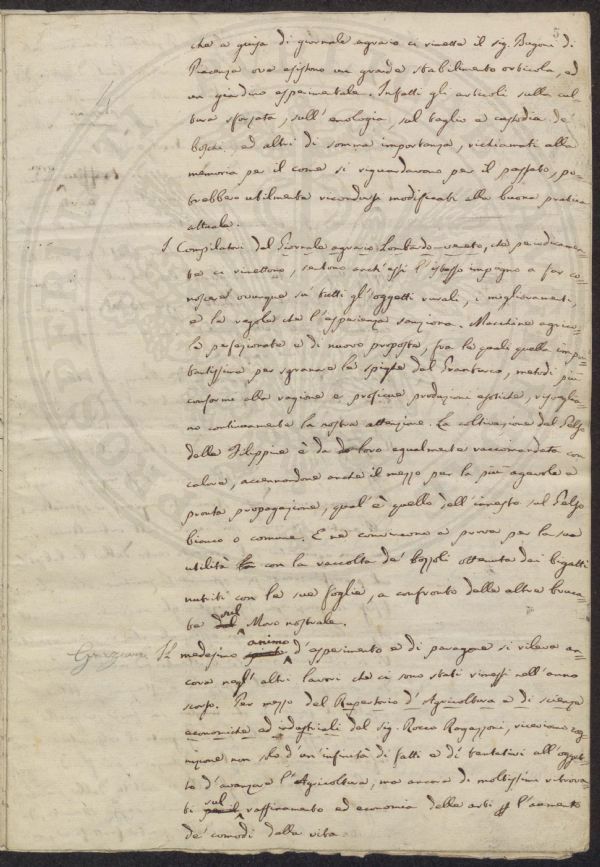 5
che a guisa di giornale agrario ci rimette il sig. Bugoni di
Piacenza ove esistono un grande stabilimento orticola, ed
un giardino esperimentale. Infatti gli articoli sulla cul-
tura sforzata, sull'enologia, sul taglio e custodia de'
boschi ed altri di somma importanza, richiamati alla
memoria per il come si riguardavano per il passato, po-
trebbero utilmente ricondursi modificati alla buona pratica
attuale.
I Compilatori del Giornale agrario Lombardo-veneto, che periodicamen-
te ci rimettono, sentono anch'essi l'istesso impegno a far co-
noscere ovunque su tutti gl'oggetti rurali, i miglioramenti,
e le regole che l'esperienza sanziona. Macchine agrico-
le perfezionate e di nuovo proposte, fra le quali quella impor-
tantissima per sgranare le spighe del Granturco, metodi più
conforme alla ragione e proficue produzioni esotiche, risveglia-
no continuamente la nostra attenzione. La coltivazione del Gelso
delle Filippine è da loro egualmente raccomandata con
calore, accennandone anche il mezzo per la più agevole e
pronta propagazione, qual'è quello dell'innesto sul Gelso
bianco o comune. E ne convennero a prova per la sua
utilità con la raccolta de' bozzoli ottenuta dai bigatti
nutriti con le sue foglie, a confronto delle altre bruca-
te sul Moro nostrale.
Il medesimo animo d'esperimento e di paragone si rileva an-
cora negl'altri lavori che ci sono stati rimessi nell'anno
scorso. Per mezzo del Repertorio d'Agricoltura e di scienze
economiche ed industriali del sig. Rocco Ragazzoni, riceviamo cog-
nizione non solo d'un'infinità di fatti e di tentativi all'ogget-
to d'avanzare l'Agricoltura, ma ancora di moltissimi ritrova-
ti sul raffinamento ed economia delle arti per l'aumento
de' comodi della vita